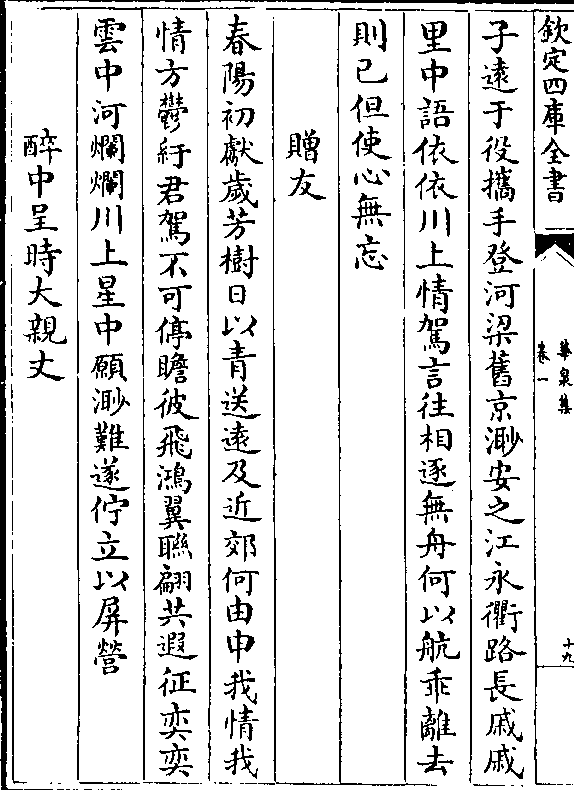 欽定四庫全書
華泉集
卷一
十九
子遠于役攜手登河梁舊京渺安之江永衢路長戚戚
里中語依依川上情駕言往相逐無舟何以航乖離去
則已但使心無忘
贈友
春陽初獻歲芳樹日以青送遠及近郊何由中我情我
情方鬱紆君駕不可停瞻彼飛鴻翼聯翩共遐征奕奕
雲中河爛爛川上星中願渺難遂佇立以屏營
醉中呈時大親丈